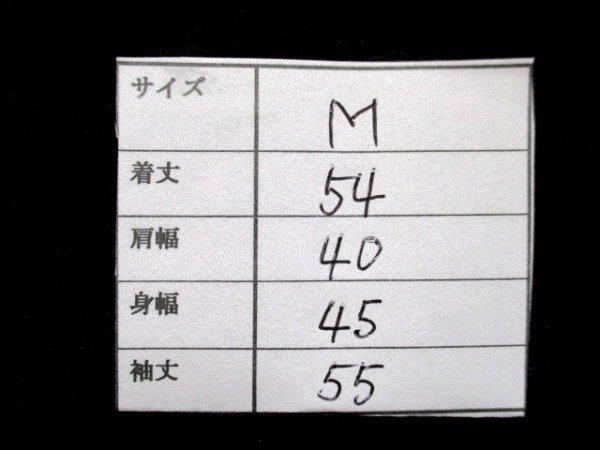 サイズ M
着丈 54
肩幅 40
身幅 45
袖丈 55